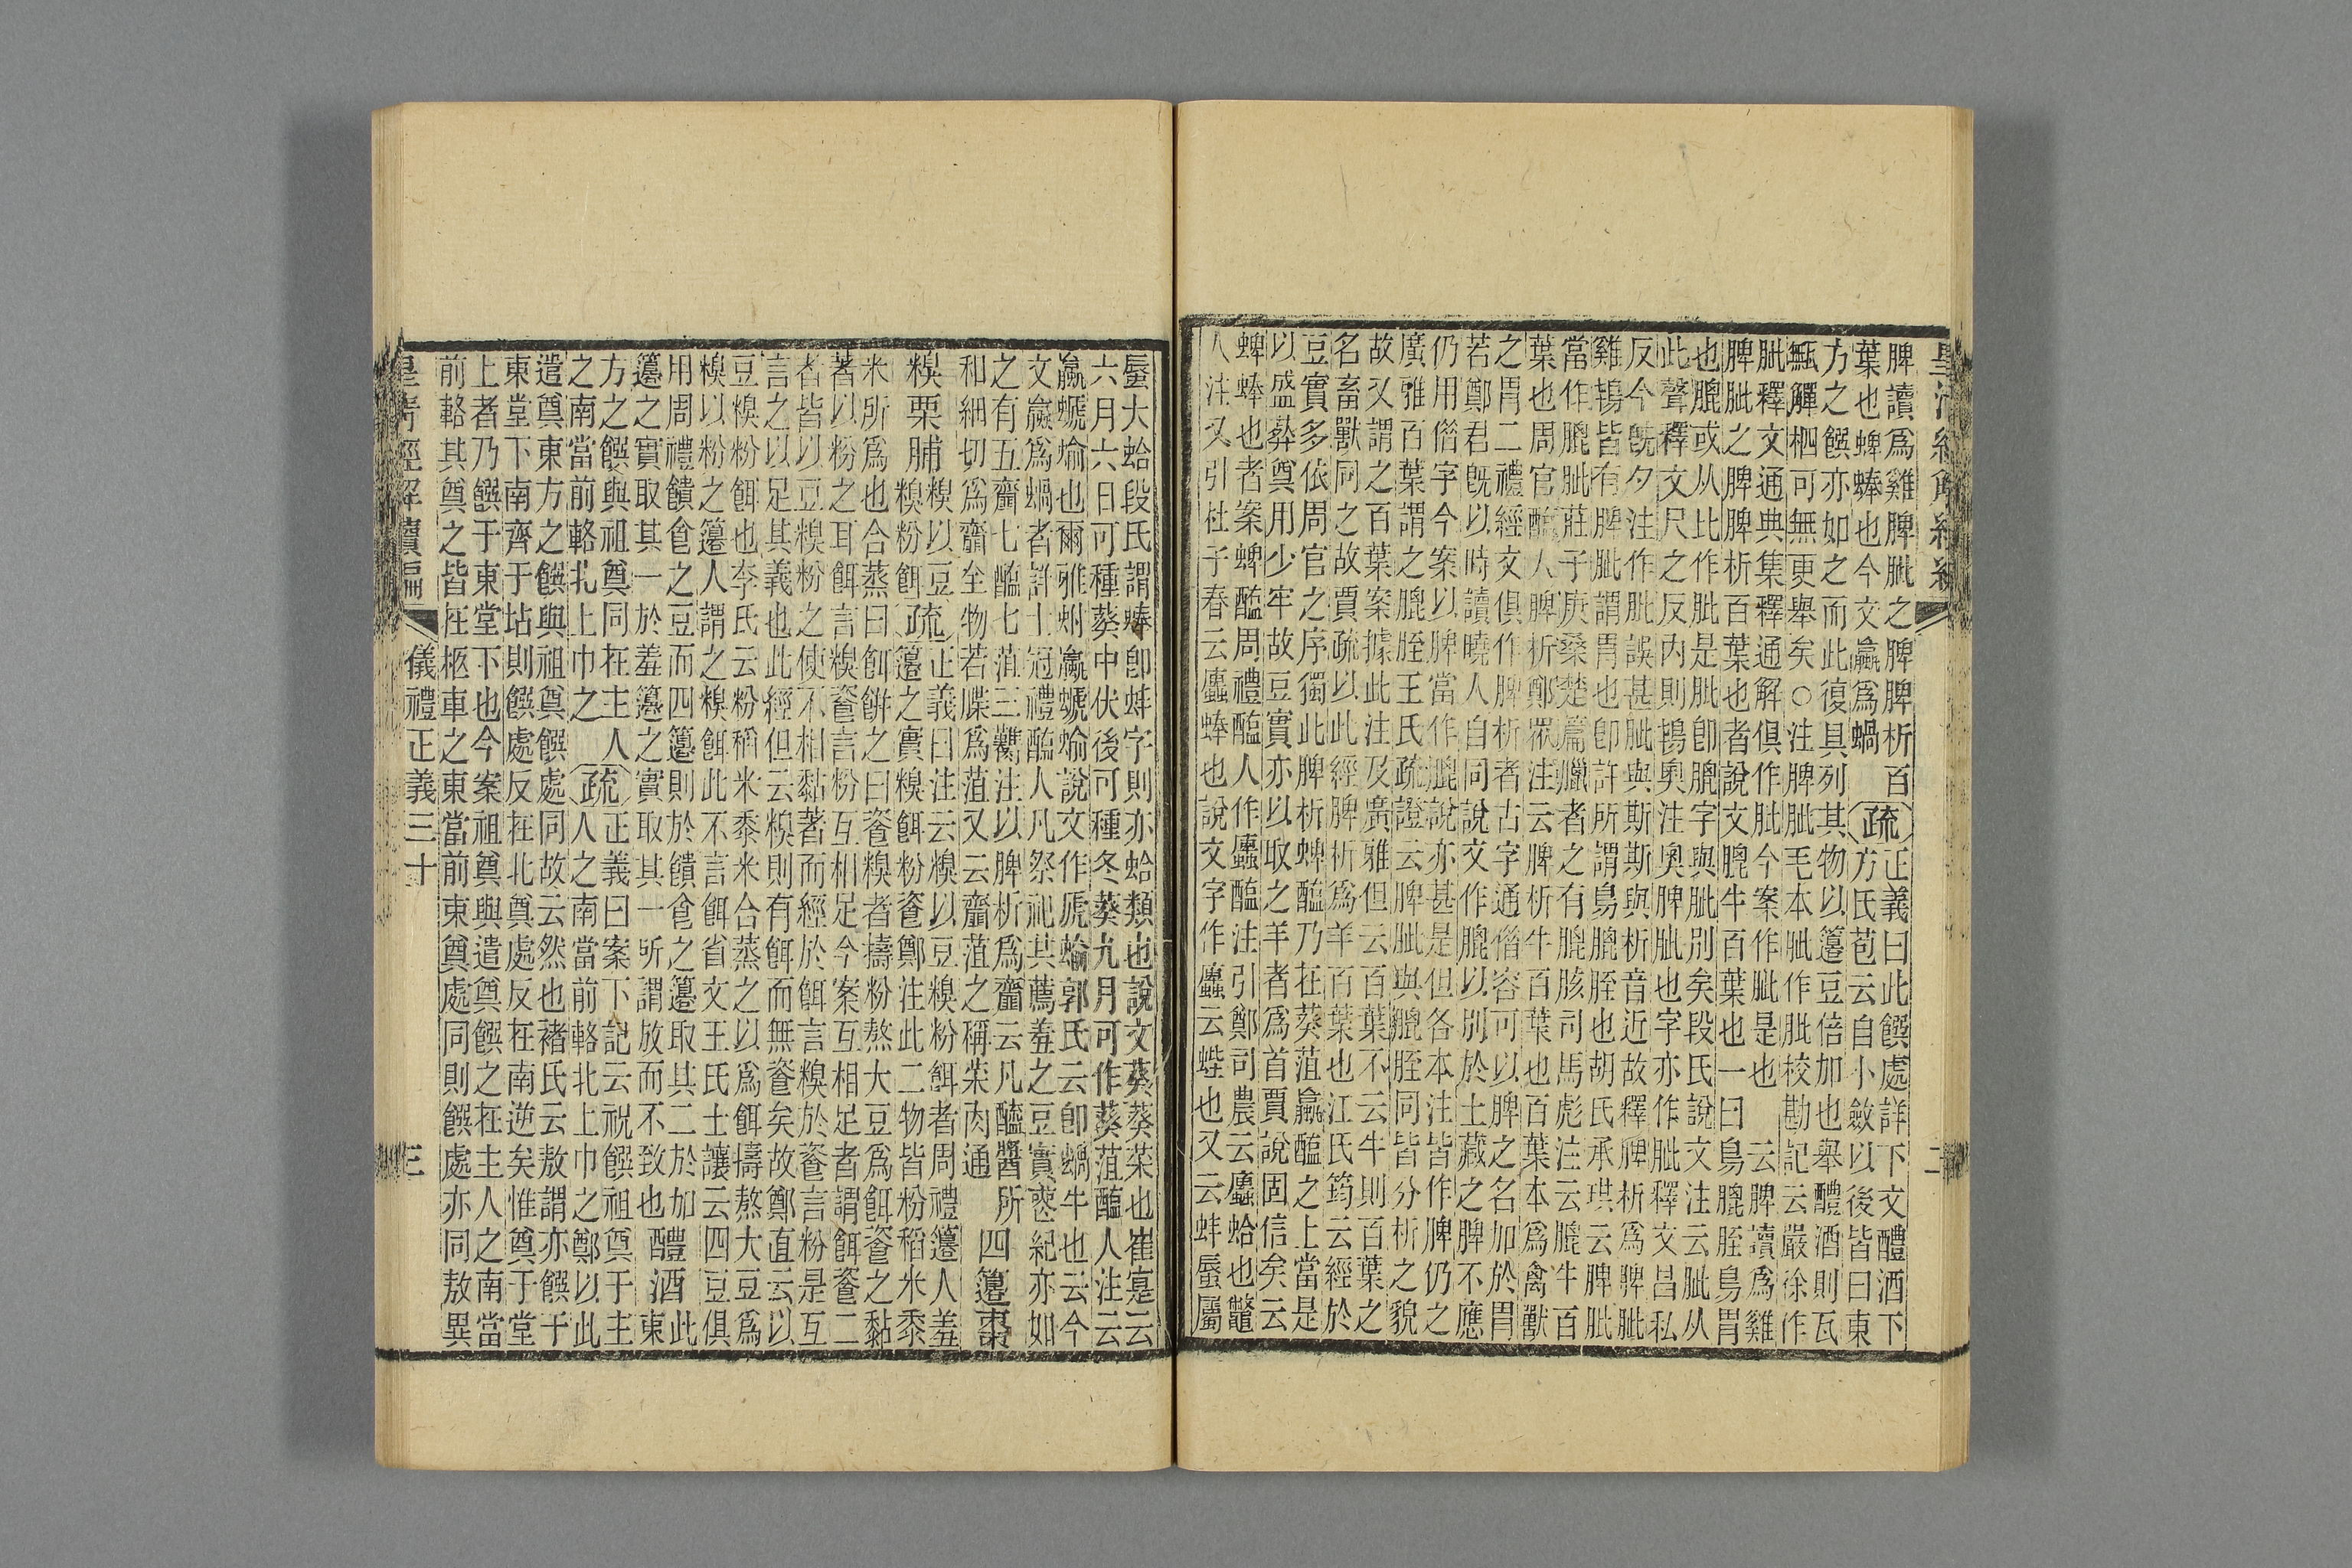 脾讀爲雞脾肶之脾脾析百
葉也蜱蜯也今文蠃爲蝸
疏
正義曰此饌處詳下文醴酒下
方氏苞云自小斂以後皆曰東
方之饌亦如之而此復具列其物以籩豆倍加也舉醴酒則瓦
甒觶柶可無更舉矣○注脾肶毛本肶作肶校勘記云嚴徐作
肶釋文通典集釋通解俱作肶今案作肶是也 云脾讀爲雞
脾肶之脾脾析百葉也者說文膍牛百葉也一曰鳥膍胵鳥胃
也膍或从比作肶是肶卽膍字與肶別矣段氏說文注云肶从
此聲釋文尺之反內則鴇奧注奧脾肶也字亦作肶釋文昌私
反今旣夕注作肶誤甚肶與斯斯與析音近故釋脾析爲脾肶
雞鴇皆有脾肶謂胃也卽許所謂鳥膍胵也胡氏承珙云脾肶
當作膍肶莊子庚桑楚篇臘者之有膍胲司馬彪注云膍牛百
葉也周官醢人脾析鄭衆注云脾析牛百葉也百葉本爲禽獸
之胃二禮經文俱作脾析者古字通偕容可以脾之名加於胃
若鄭君旣以時讀曉人自同說文作膍以別於土藏之脾不應
仍用偕字今案以脾當作膍說亦甚是但各本注皆作脾仍之
廣雅百葉謂之膍胵王氏疏證云脾肶與膍胵同皆分析之貌
故又謂之百葉案據此注及廣雅但云百葉不云牛則百葉之
名畜獸同之故賈疏以此經脾析爲羊百葉也江氏筠云經於
豆實多依周官之序獨此脾析蜱醢乃在葵菹蠃醢之上當是
以盛葬奠用少牢故豆實亦以取之羊者爲首賈說固信矣云
蜱蜯也者案蜱醢周禮醢人作蠯醢注引鄭司農云蠯蛤也鼈
人注又引杜子春云蠯蜯也說文字作蠯云蜌也又云蚌蜃屬
蜃大蛤段氏謂蜯卽蚌字則亦蛤類也說文葵葵菜也崔寔云
六月六日可種葵中伏後可種冬葵九月可作葵菹醢人注云
蠃螔蝓也爾雅蚹蠃螔蝓說文作虒蝓郭氏云卽蝸牛也云今
文蠃爲蝸者許士冠禮醢人凡祭祀共薦羞之豆實喪紀亦如
之有五齏七醢七菹三臡注以脾析爲齏云凡醢醬所
和細切爲齏全物若䐑爲菹又云齏菹之稱菜肉通
四籩棗
糗栗脯
糗以豆
糗粉餌
疏
正義曰注云糗以豆糗粉餌者周禮籩人羞
籩之實糗餌粉餈鄭注此二物皆粉稻米黍
米所爲也合蒸曰餌餠之曰餈糗者擣粉熬大豆爲餌餈之黏
著以粉之耳餌言糗餈言粉互相足今案互相足者謂餌餈二
者皆以豆糗粉之使不相黏著而經於餌言糗於餈言粉是互
言之以足其義也此經但云糗則有餌而無餈矣故鄭直云以
豆糗粉餌也李氏云粉稻米黍米合蒸之以爲餌擣熬大豆爲
糗以粉之籩人謂之糗餌此不言餌省文王氏士讓云四豆俱
用周禮饋食之豆而四籩則於饋食之籩取其二於加
籩之實取其一於羞籩之實取其一所謂放而不致也
醴酒
此
東
方之饌與祖奠同在主人
之南當前輅北上巾之
疏
正義曰案下記云祝饌祖奠于主
人之南當前輅北上巾之鄭以此
遣奠東方之饌與祖奠饌處同故云然也褚氏云敖謂亦饌于
東堂下南齊于坫則饌處反在北奠處反在南逆矣惟奠于堂
上者乃饌于東堂下也今案祖奠與遣奠饌之在主人之南當
前輅其奠之皆在柩車之東當前東奠處同則饌處亦同敖異
皇清經解續編
儀禮正義三十
三